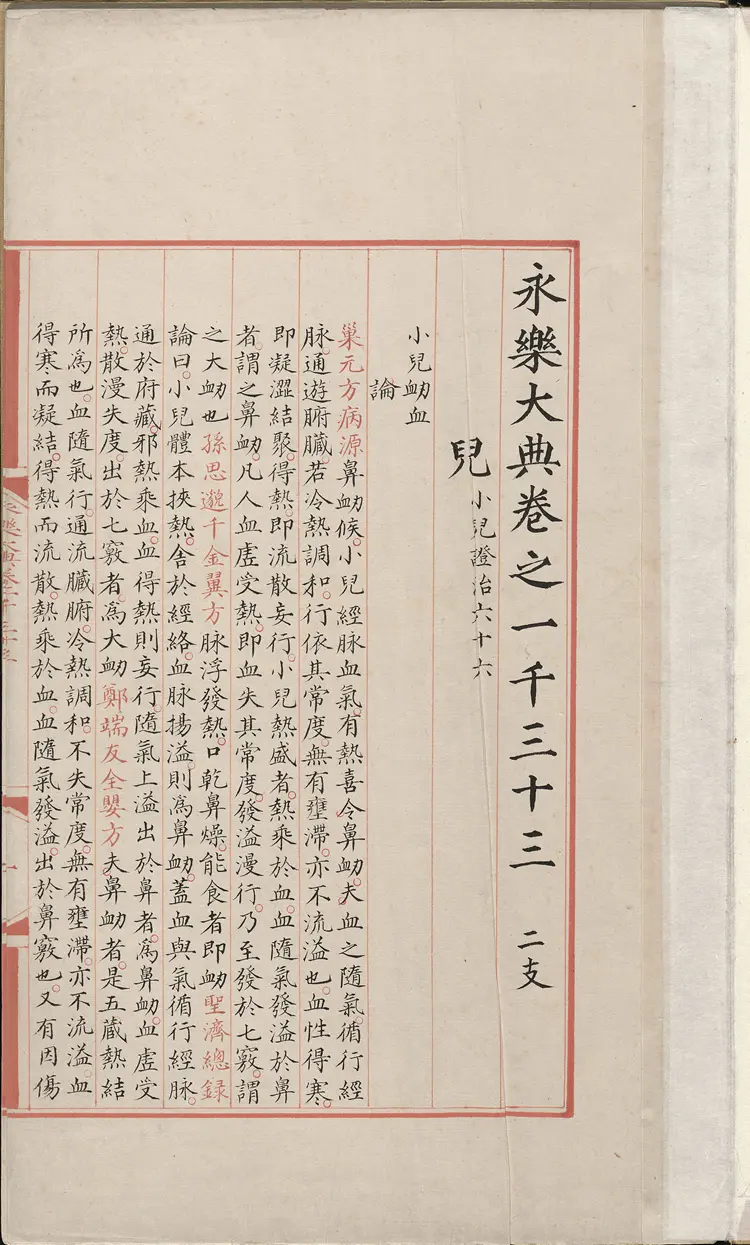 永樂大典卷之一千三十三 二支
兒 小兒證治六十六
小兒衂血
論
巢元方病源鼻衂候。小兒經脉血氣。有熱喜令鼻衂。夫血之隨氣。循行經
脉。通遊腑臟。若冷熱調和。行依其常度。無有壅滯。亦不流溢也。血性得寒。
即凝澀結聚。得熱。即流散妄行。小兒熱盛者。熱乘於血。血隨氣發溢於鼻
者。謂之鼻衂。凡人血虛受熱。即血失其常度。發溢漫行。乃至發於七竅。謂
之大衂也孫思邈千金翼方脉浮發熱。口乾鼻燥。能食者即衂聖濟總録
論曰。小兒體本挾熱。舍於經絡。血脉揚溢。則爲鼻衂。蓋血與氣循行經脉。
通於府藏。邪熱乘血。血得熱則妄行。隨氣上溢出於鼻者。爲鼻衂。血虛受
熱。散漫失度。出於七竅者爲大衂鄭端友全嬰方夫鼻衂者。是五蔵熱結
所爲也。血隨氣行。通流臟腑。冷熱調和。不失常度。無有壅滯。亦不流溢。血
得寒而凝結。得熱而流散。熱乘於血。血隨氣發溢。出於鼻竅也。又有因傷